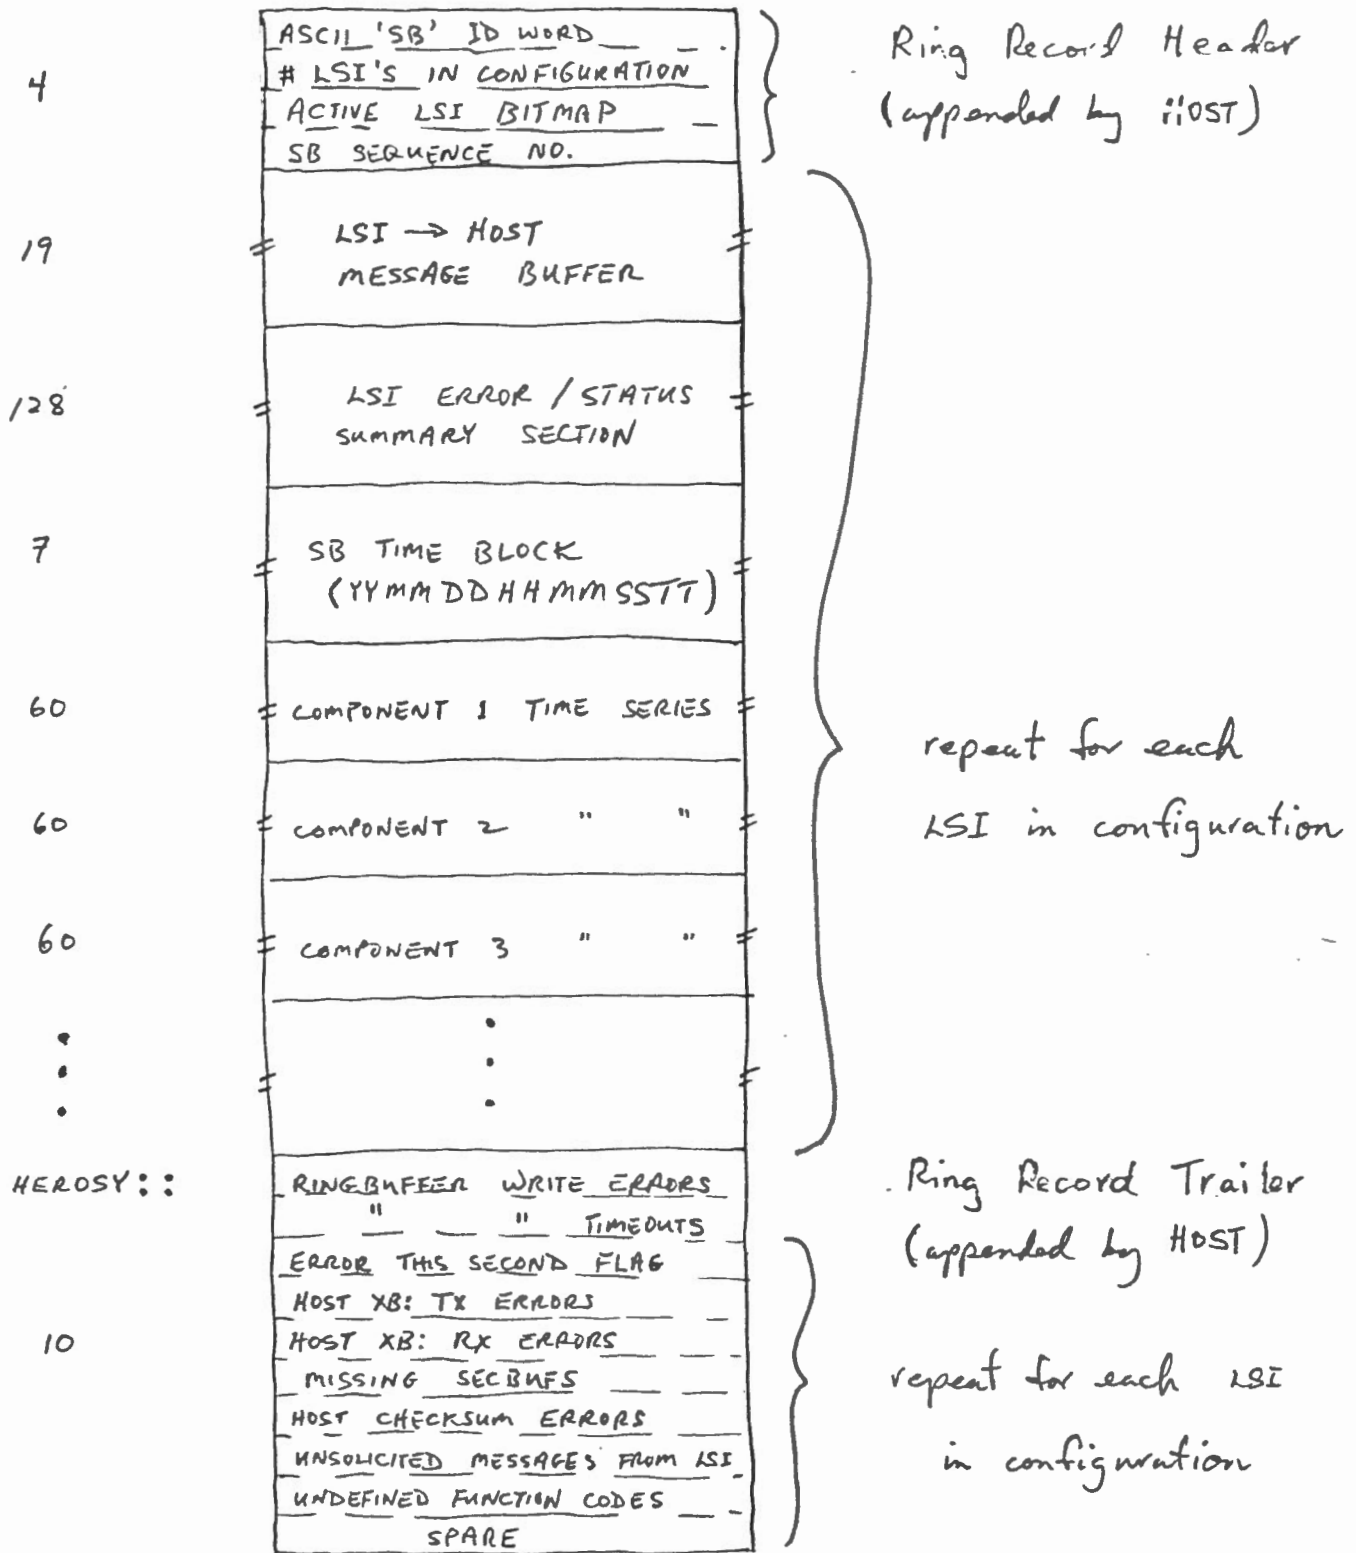 4
ASCII 'SB' ID WORD
# LSI'S IN CONFIGURATION
ACTIVE LSI BITMAP
SB SEQUENCE NO.
Ring Record Header
(appended by HOST)
19
LSI → HOST
MESSAGE BUFFER
128
LSI ERROR / STATUS
SUMMARY SECTION
7
SB TIME BLOCK
(YYMMDDHHMMSSTT)
60
COMPONENT 1 TIME SERIES
60
COMPONENT 2 " "
60
COMPONENT 3 " "
repeat for each
LSI in configuration
HEROSY::
RINGBUFFER WRITE ERRORS
" " TIMEOUTS
Ring Record Trailer
(appended by HOST)
10
ERROR THIS SECOND FLAG
HOST XB: TX ERRORS
HOST XB: RX ERRORS
MISSING SECBUFS
HOST CHECKSUM ERRORS
UNSOLICITED MESSAGES FROM LSI
UNDEFINED FUNCTION CODES
SPARE
repeat for each LSI
in configuration